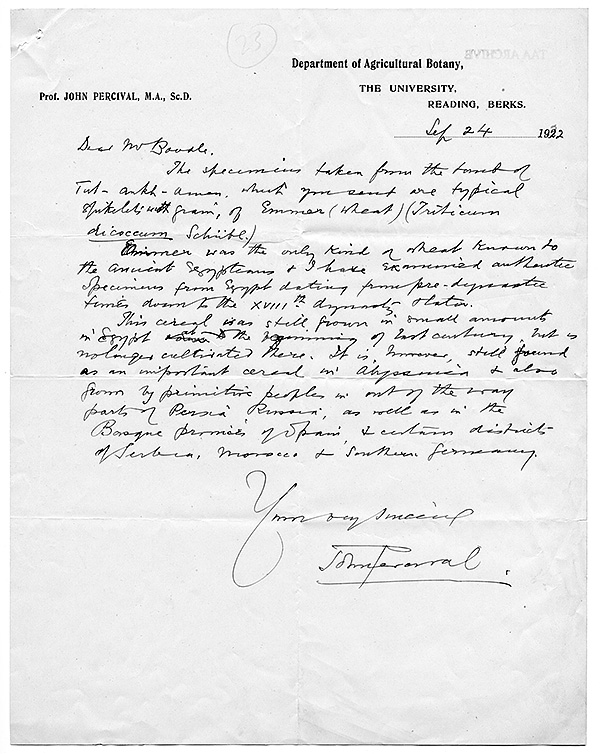 23
TAA ARCHIVE
Department of Agricultural Botany,
THE UNIVERSITY,
READING, BERKS.
Prof. JOHN PERCIVAL, M.A., Sc.D.
Sep 24 1922
Dear Mr Boodle.
The specimens taken from the tomb of
Tut-ankh-amen, which you sent are typical
spikelets with grain, of Emmer (wheat) (Triticum
dicoccum Schübl.)
Emmer was the only kind of wheat known to
the ancient Egyptians & I have examined authentic
specimens from Egypt dating from pre-dynastic
times down to the XVIIIth dynasty & later.
This cereal was still grown in small amounts
in Egypt at the beginning of last century, but is
no longer cultivated there. It is, however, still found
as an important cereal in Abyssinia & also
grown by primitive peoples in out of the way
parts of Persia, Russia, as well as in the
Basque provinces of Spain, & certain districts
of Serbia, Morocco & Southern Germany.
Yours very sincerely
John Percival.